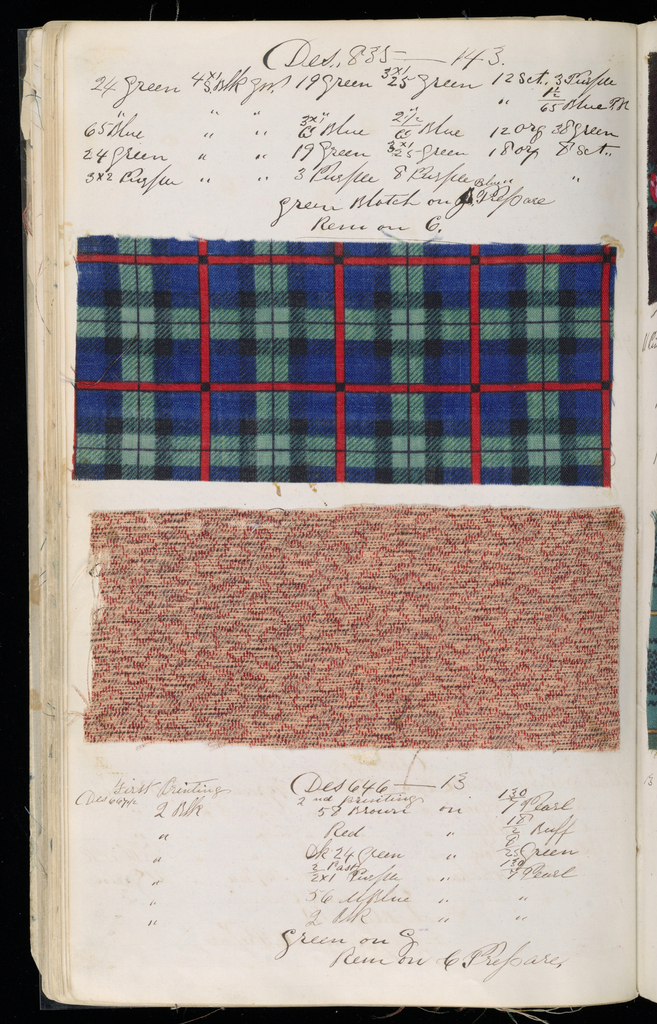 Des. 835 — 143.
24 Green 4x1 Blk 19 Green 3x1 25 Green 12 Set. 3 Purple
" 1½ 65 Blue
65 Blue " " 3x1 65 Blue 2½ 65 Blue 12 Org 38 Green
24 Green " " 19 Green 3x1 25 Green 18 Org 8 Set.
3x2 Purple " " 3 Purple 8 Purple "
Green Blotch on Prepare
Rem on C.
First Printing Des 646 — 13
2nd Printing
2 Blk 58 Brown on 130 7 Pearl
" Red " 18 2 Buff
" Dk 24 Green " 8 25 Green
" 2x1 Purple " 130 7 Pearl
" 56 Blue " "
" 2 Blk " "
Green on G
Rem on C Prepare,